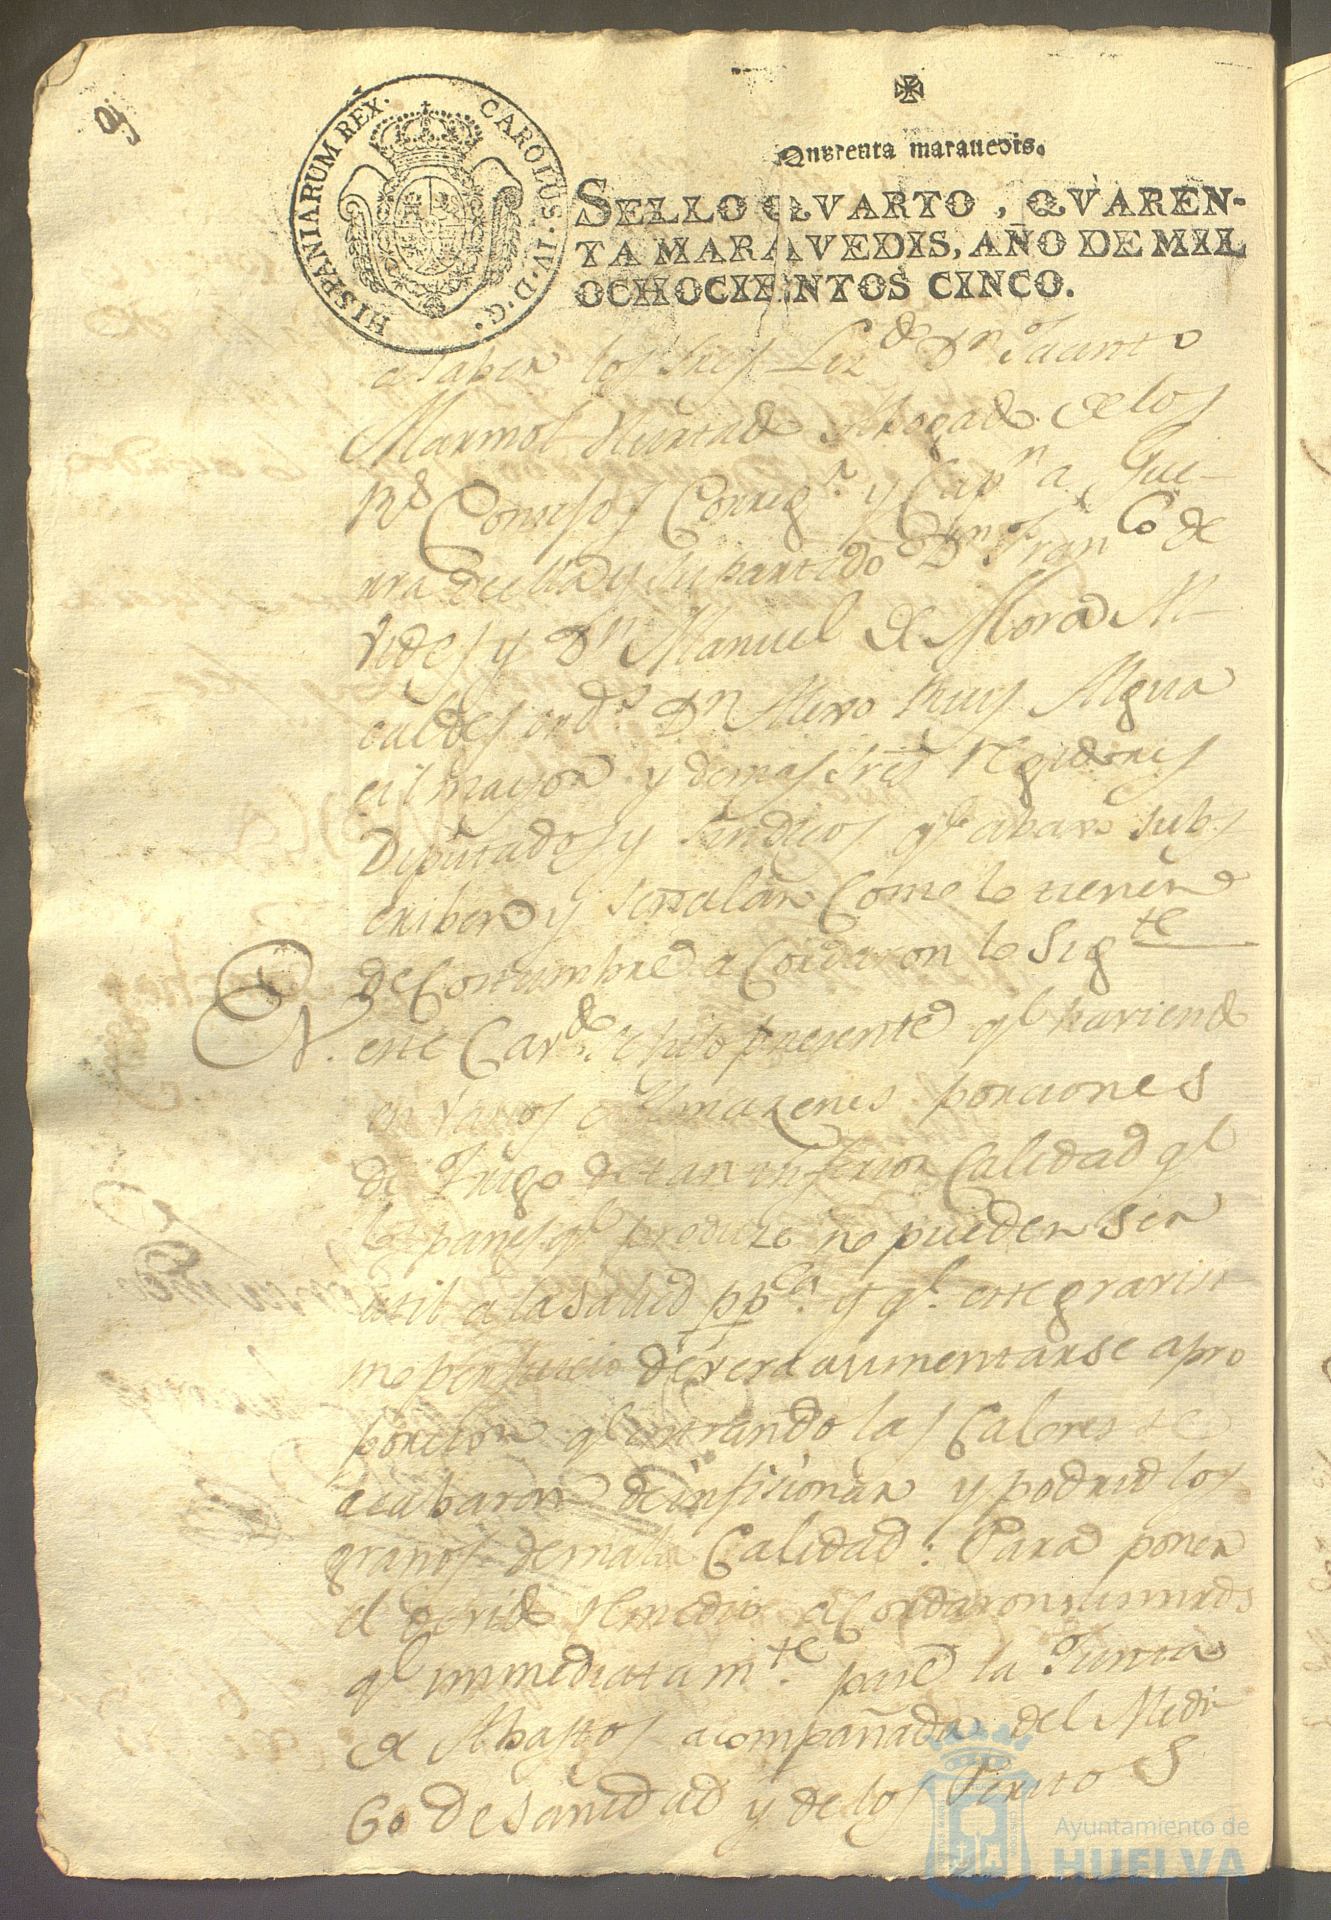 HISPANIARUM REX. CAROLUS. IV. D. G.
Quarenta maravedis.
SELLO QVARTO, QVAREN-
TA MARAVEDIS, AÑO DE MIL
OCHOCIENTOS CINCO.
a saber los Sres Lizdo Dn Jacinto
Marmol Hurtado Abogado de los
Rs Consejos Corregr y Capn a Gue-
rra de ella y su partido Dn Franco de
y Dn Manuel de Mora Al-
caldes ordos Dn Alexo Ruis Algua
cil mayor y demas sres Regidores
Diputados y Sindicos qe abaxo subs
criben y señalan Como lo tienen
de Costumbre acordaron lo Sigte
En este Cavdo se hiso presente qe haviendo
en varios Almazenes porciones
de Trigo de tan inferior Calidad qe
los panes qe produze no pueden ser
util a la salud ppca y qe este gravisi
mo perjuicio devera aumentarse apro
porcion qe entrando las Calores se
acabaron de infisionar y podrid los
granos de mala Calidad: Para poner
el devido Remedio acordaron sus mrds
qe immediatamte pase la Junta
de Abastos acompañada del Medi
co de Sanidad y de los Peritos
Ayuntamiento de
HUELVA